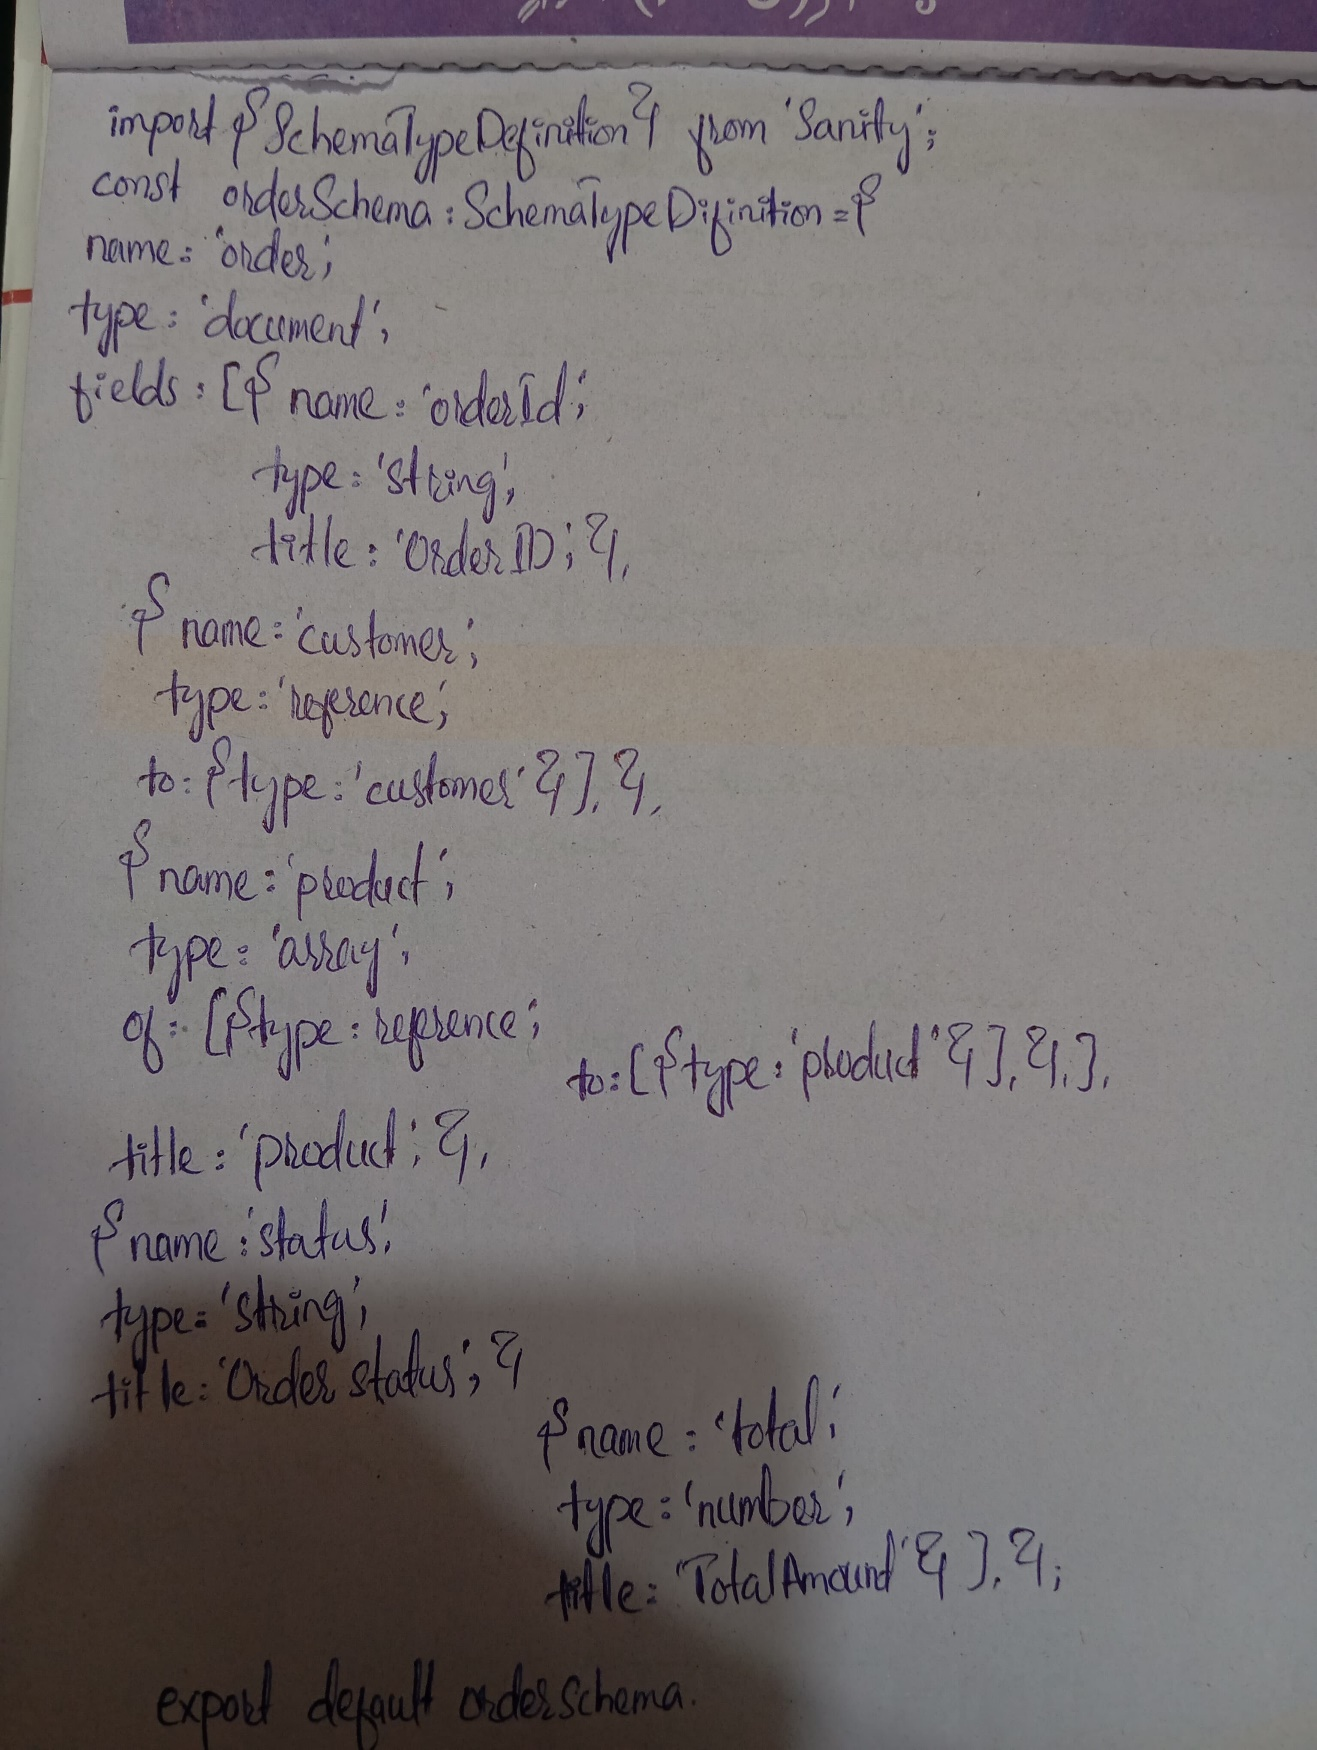 import {SchemaTypeDefinition} from 'Sanity';
const orderSchema: SchemaTypeDifinition = {
name: 'order',
type: 'document',
fields: [{ name: 'orderId',
type: 'string',
title: 'Order ID', },
{ name: 'customer',
type: 'reference',
to: {type: 'customer' }], },
{ name: 'product',
type: 'array',
of: [{type: reference,
to: [{type: 'product' }], }, ],
title: 'product', },
{ name: 'status'
type: 'string',
title: 'Order status', }
{ name: 'total,
type: 'number',
title: 'Total Amount' } ], };
export default orderSchema.